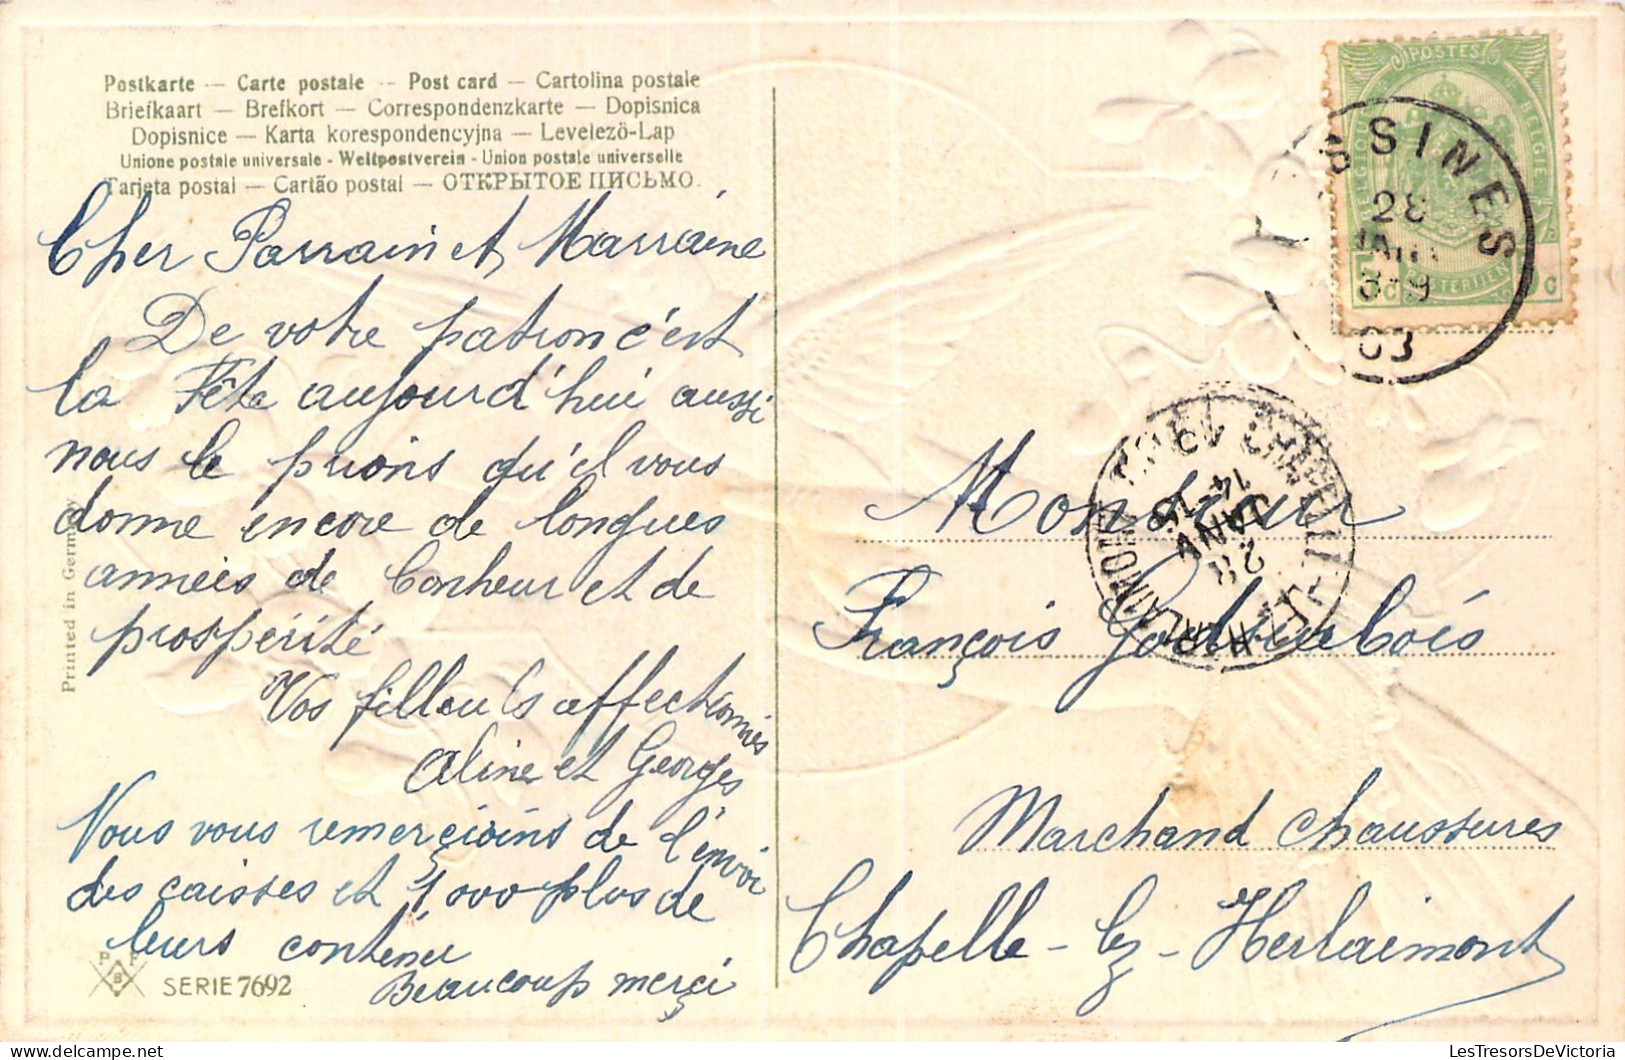 Postkarte — Carte postale — Post card — Cartolina postale
Briefkaart — Brefkort — Correspondenzkarte — Dopisnica
Dopisnice — Karta korespondencyjna — Levelezö-Lap
Unione postale universale - Weltpostverein - Union postale universelle
Tarjeta postal — Cartão postal — ОТКРЫТОЕ ПИСЬМО.
Cher Parrain et Marraine
De votre patron c'est
la Fête aujourd'hui aussi
nous le prions qu'il vous
donne encore de longues
années de bonheur et de
prospérité
Vos filleuls affectionnés
Aline et Georges
Nous vous remerçioins de l'envoi
des caisses et 1000 plus de
leurs contenu
Beaucoup merçi
Printed in Germany
P F
B
SERIE 7692
POSTES
BELGIQUE
BELGIË
POSTERIJEN
C
SSINES
28
JANV
8-9
03
CHAPELLE-LEZ-HERLAIMONT
14-15
JANV
28
Monsieur
François
Marchand Chaussures
Chapelle-lez-Herlaimont
LesTresorsDeVictoria
delcampe.net